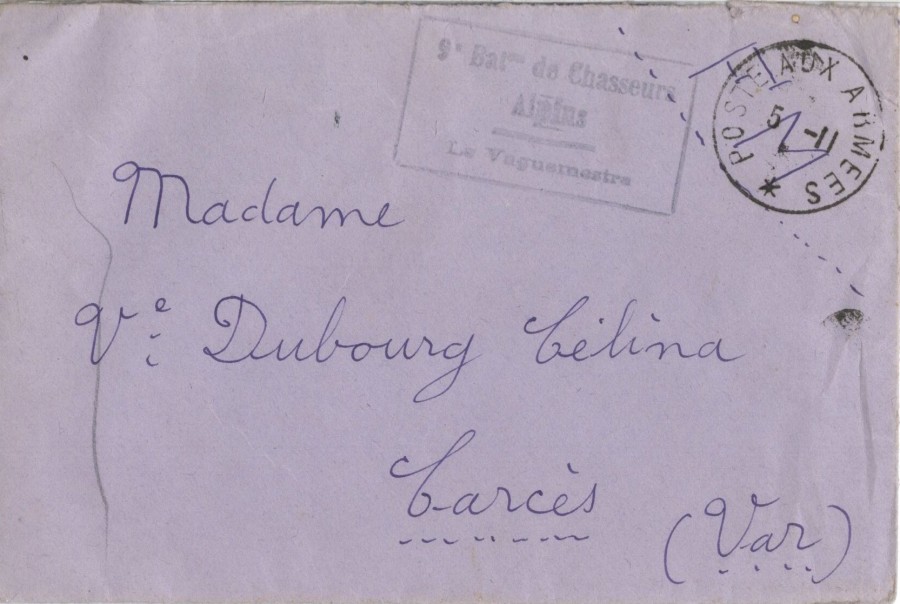 9e Baton de Chasseurs
Alpins
Le Vaguemestre
POSTE AUX ARMEES *
5 -11
Madame
Vve Dubourg Célina
Carcès
(Var)